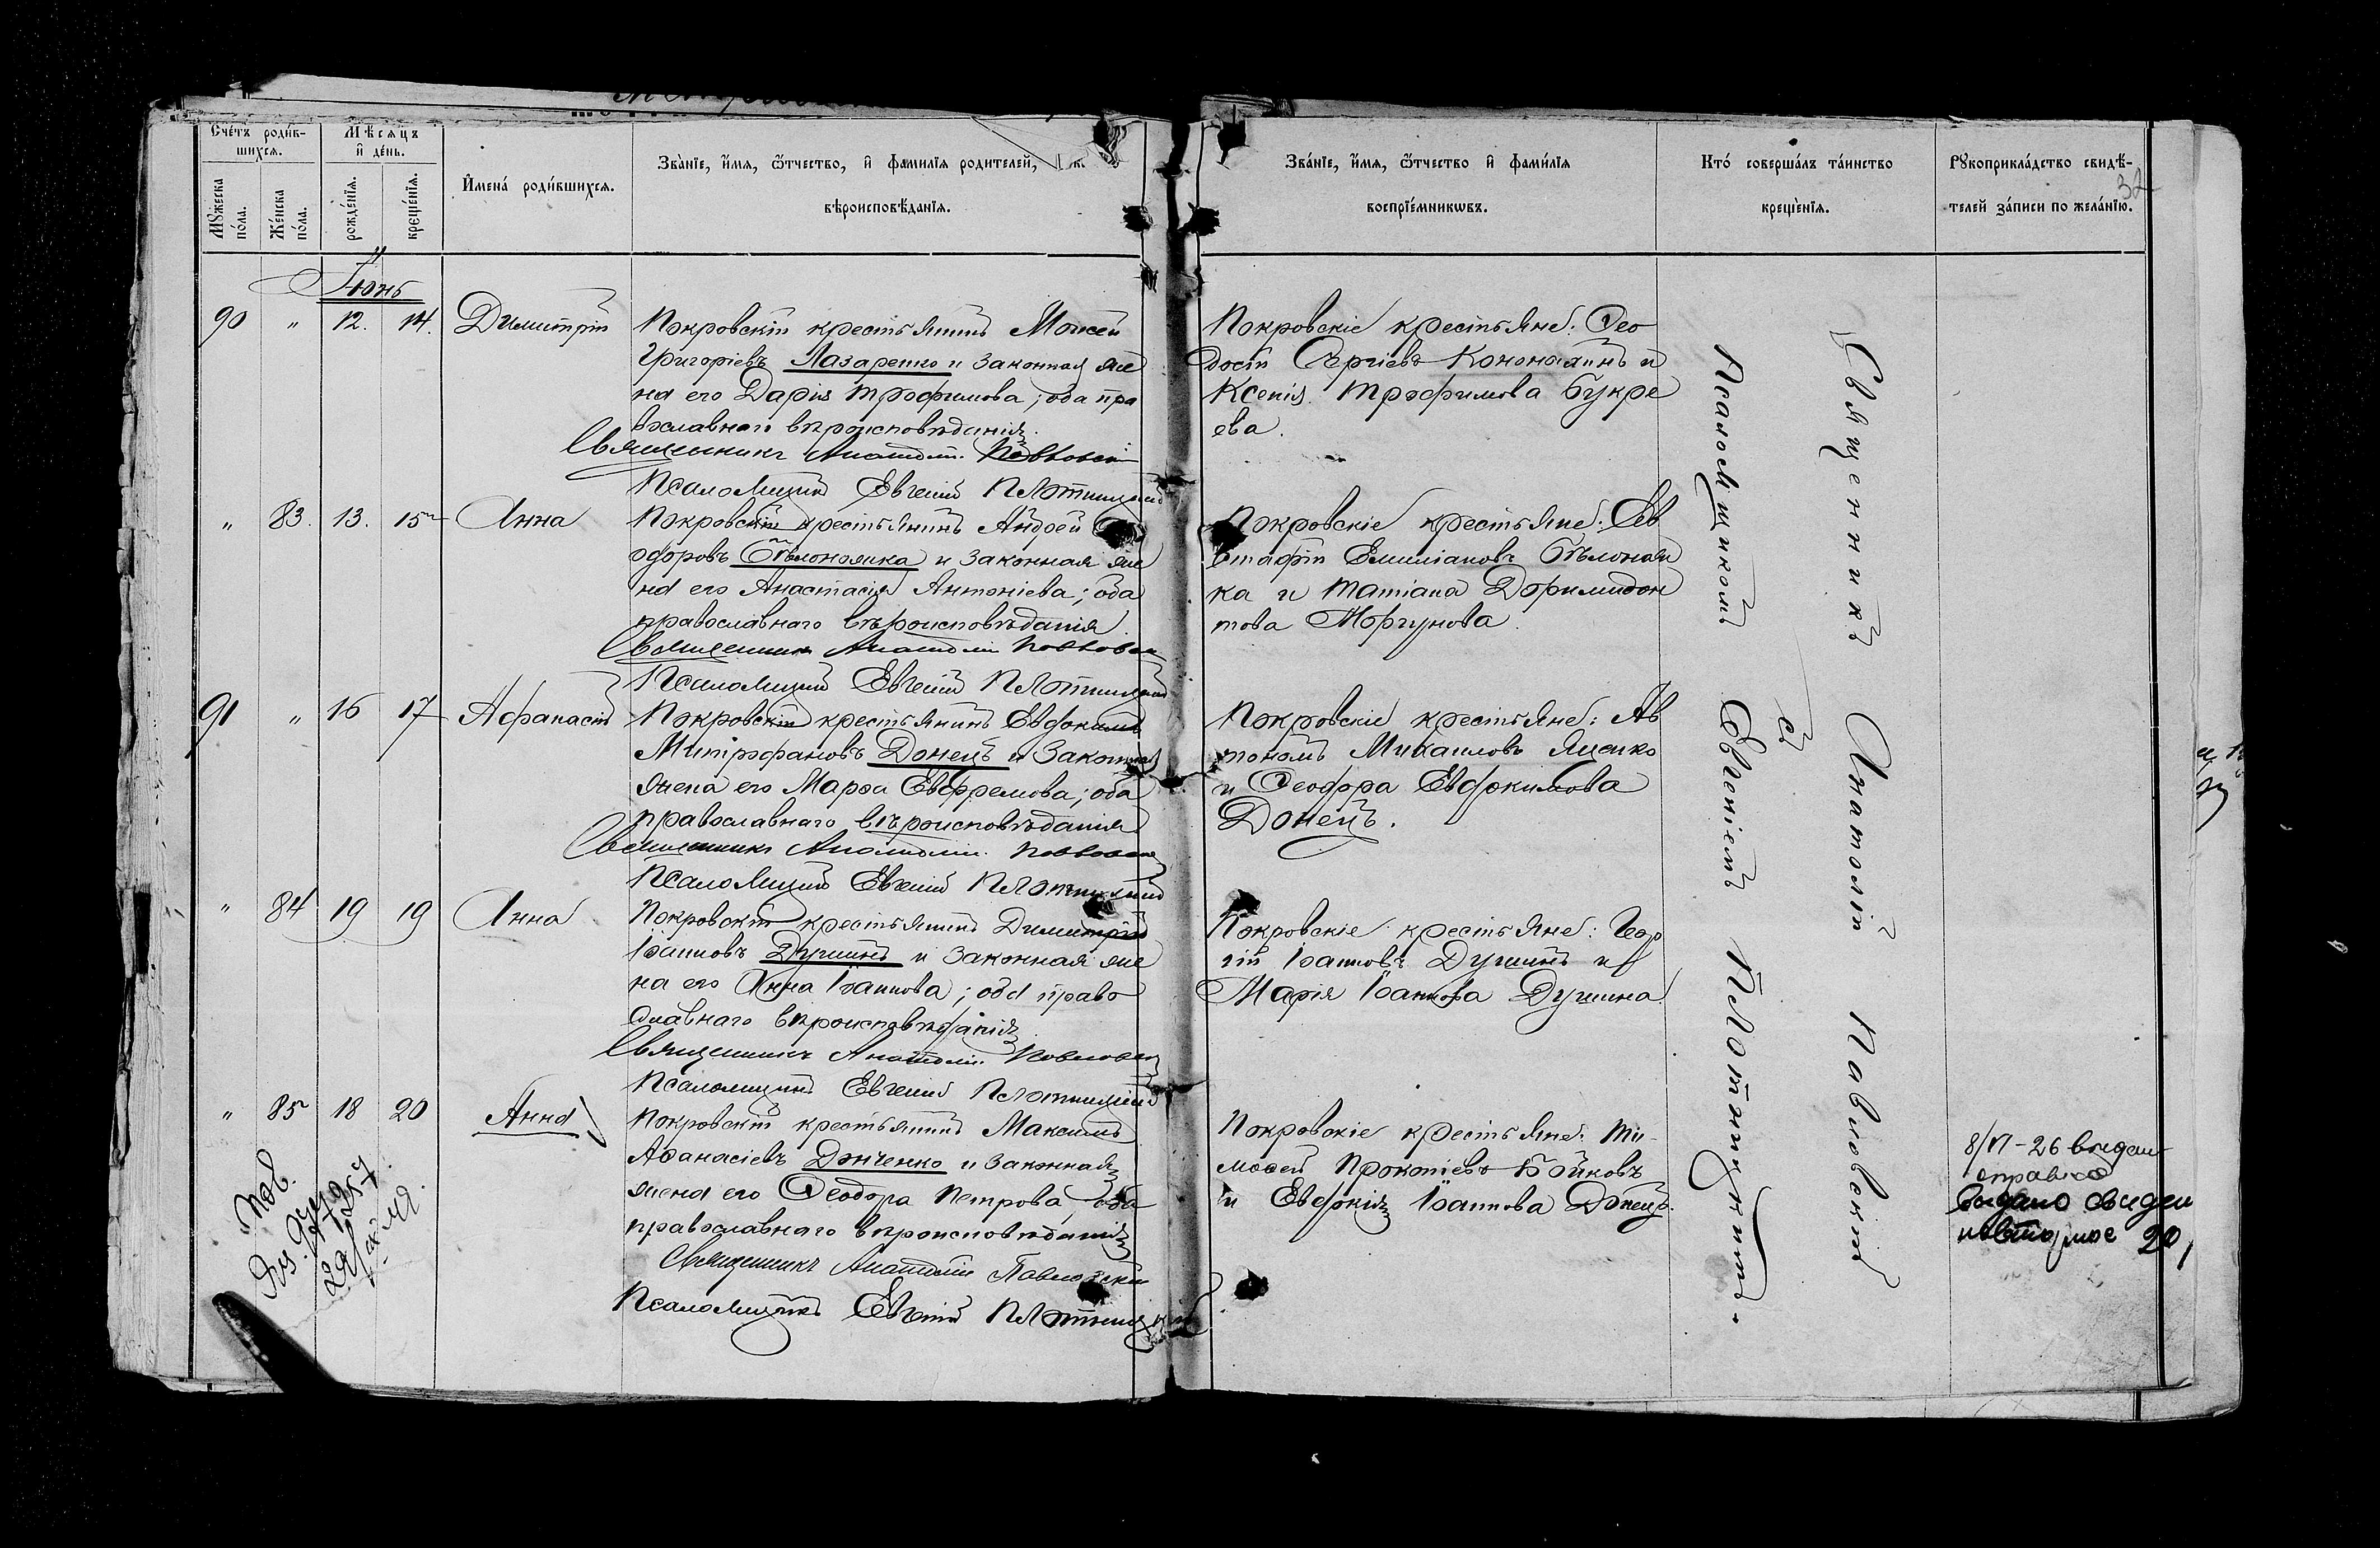 Счетъ родив-
шихся.
Мѣсяцъ
и день.
Мужеска
пола.
Женска
пола.
рожденія.
крещенія.
Имена родившихся.
Званіе, имя, отчество, и фамилія родителей,
вѣроисповѣданія.
Званіе, имя, отчество и фамилія
воспріемниковъ.
Кто совершалъ таинство
крещенія.
Рукоприкладство свидѣ-
телей записи по желанію.
32
Іюнь
90 " 12. 14. Димитрій
Покровскій крестьянинъ Моисей
Григоріевъ Лазаренко и законная же
на его Дарія Трофимова; оба пра
вославнаго вѣроисповѣданія.
Священникъ Анатолій Павловскій
Псаломщикъ Евгеній Плотницкій
Покровскіе крестьяне: Ѳео
досій Сергіевъ Кононыхинъ и
Ксенія Трофимова Букре
ева.
" 83. 13. 15 Анна
Покровскій крестьянинъ Андрей
одоровъ Бѣлоножка и законная же
на его Анастасія Антоніева; оба
православнаго вѣроисповѣданія.
Священникъ Анатолій Павловскій
Псаломщикъ Евгеній Плотницкій
Покровскіе крестьяне: Ев
стафій Емиліановъ Бѣлонож
ка и Татіана Доримидон
това Моргунова.
91 " 16 17 Афанасій
Покровскій крестьянинъ Евдокимъ
Митрофановъ Донецъ и законная
жена его Марѳа Евфремова; оба
православнаго вѣроисповѣданія
Священникъ Анатолій Павловскій
Псаломщикъ Евгеній Плотницкій
Покровскіе крестьяне: Ав
тономъ Михаиловъ Яценко
и Ѳеодора Евдокимова
Донецъ.
" 84 19 19 Анна
Покровскій крестьянинъ Димитрій
Іоанновъ Душинъ и законная же
на его Анна Іоаннова; оба право
славнаго вѣроисповѣданія.
Священникъ Анатолій Павловскій
Псаломщикъ Евгеній Плотницкій
Покровскіе крестьяне: Геор
гій Іоанновъ Душинъ и
Марія Іоаннова Душина.
" 85 18 20 Анна
Покровскій крестьянинъ Максимъ
Аѳанасіевъ Донченко и законная
жена его Ѳеодора Петрова, оба
православнаго вѣроисповѣданія
Священникъ Анатолій Павловскій
Псаломщикъ Евгеній Плотницкій
Покровскіе крестьяне: Ти
моѳей Прокопіевъ Бойковъ
и Евдокія Іоаннова Донецъ.
Священникъ Анатолій Павловскій
съ
Псаломщикомъ Евгеніемъ Плотницкимъ.
8/VI-26 выдан
справка
выдано свидет
20,